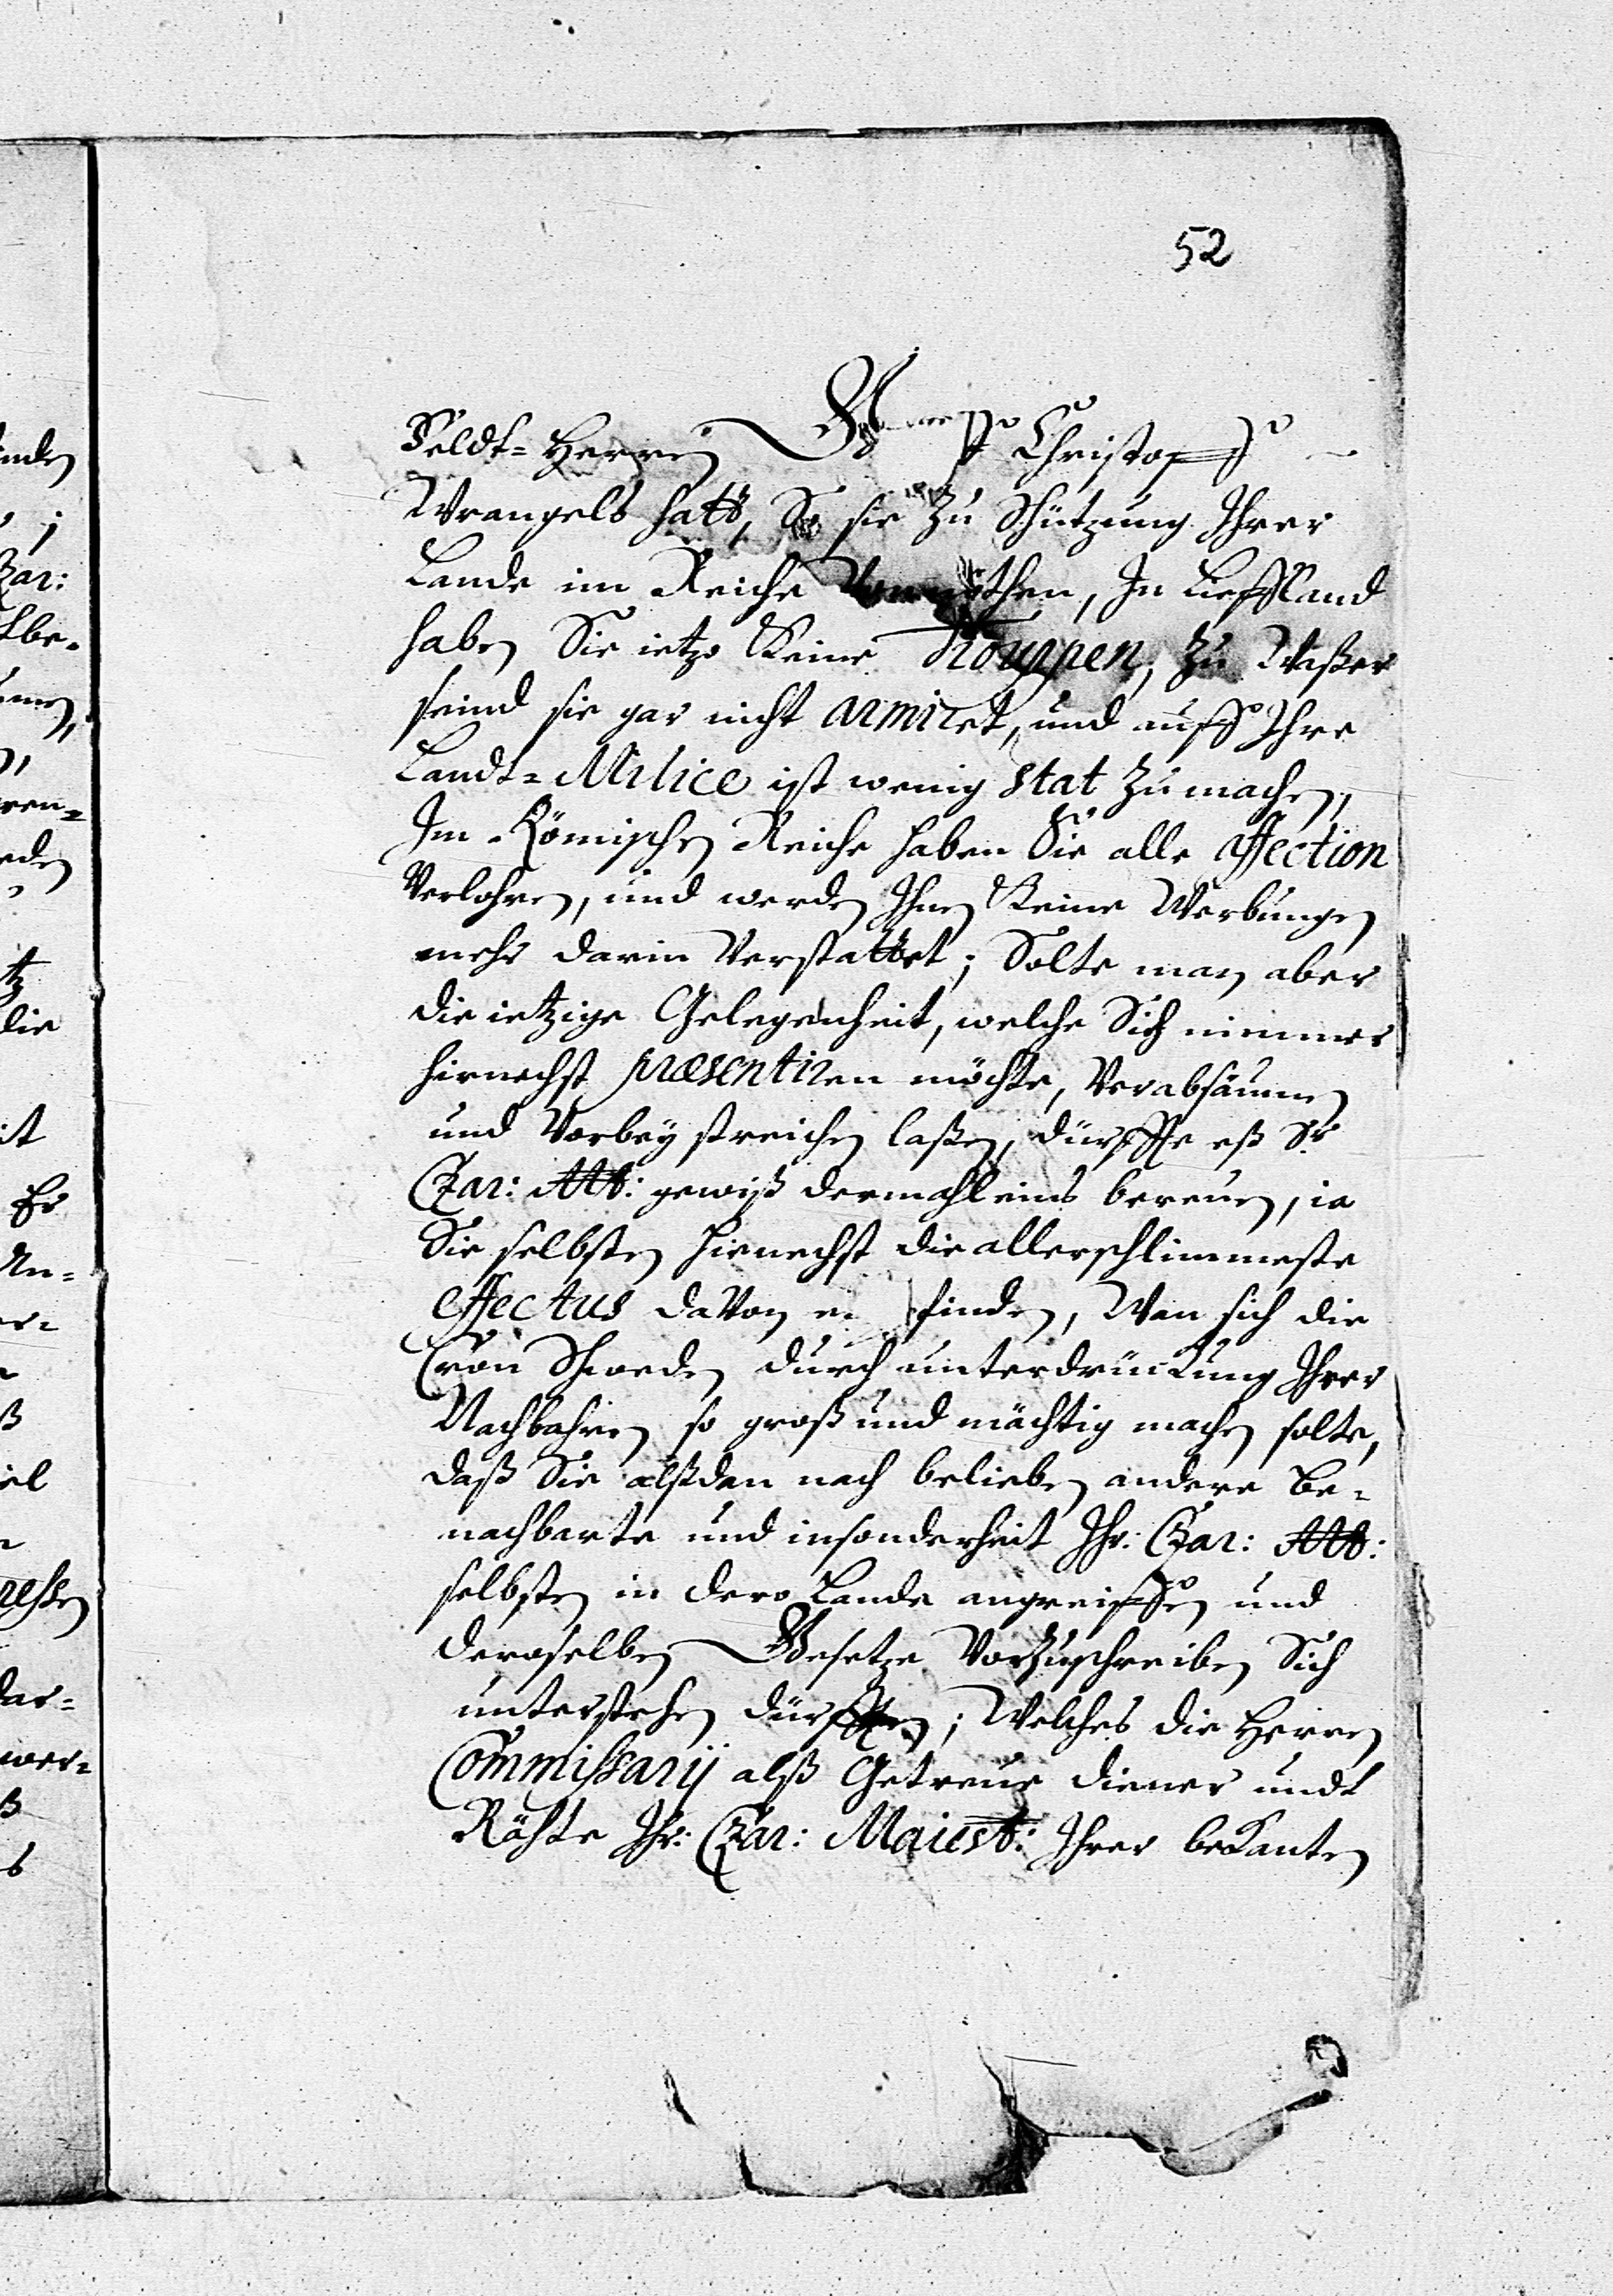 52
Feldt-Herren Christoff
Wrangels hatt, So sie zu Schützung Ihrer
Lande im Reiche Vonnöthen, In Liefflandt
haben Sie ietzo Keine Trouppen, zu Waßer
seind sie gar nicht armiret, und auff Ihre
Landt-Milice ist wenig stat zu machen,
Im Römischen Reiche haben Sie alle affection
Verlohren, und werden Ihnen Keine Werbungen
mehr darin Verstattet; Solte man aber
die ietzige Gelegenheit, welche Sich nimmer
hirnechst præsentiren möchte, Verabsäumen
und Vorbey streichen laßen, dürffte eß Sr.
Czar: Mtt: gewiß dermahleins bereuen, ia
Sie selbsten hirnechst die allerschlimmeste
effectus daVon finden, Wan sich die
Cron Schweden durch unterdrückung Ihrer
Nachbahren so groß und mächtig machen solte,
daß Sie alßdan nach belieben andere Be-
nachbarte und insonderheit Ihr: Czar: Mtt:
selbsten in dero Lande angreiffen und
deroselben Gesetze Vorzuschreiben Sich
unterstehen dürfften; Welches die Herren
Commissarij alß Getreue diener undt
Rähte Ihr: Czar: Maiestt: Ihrer beKanten
inden
Czar:
die
it
Er
An-
ß
dar-
wer-
ß